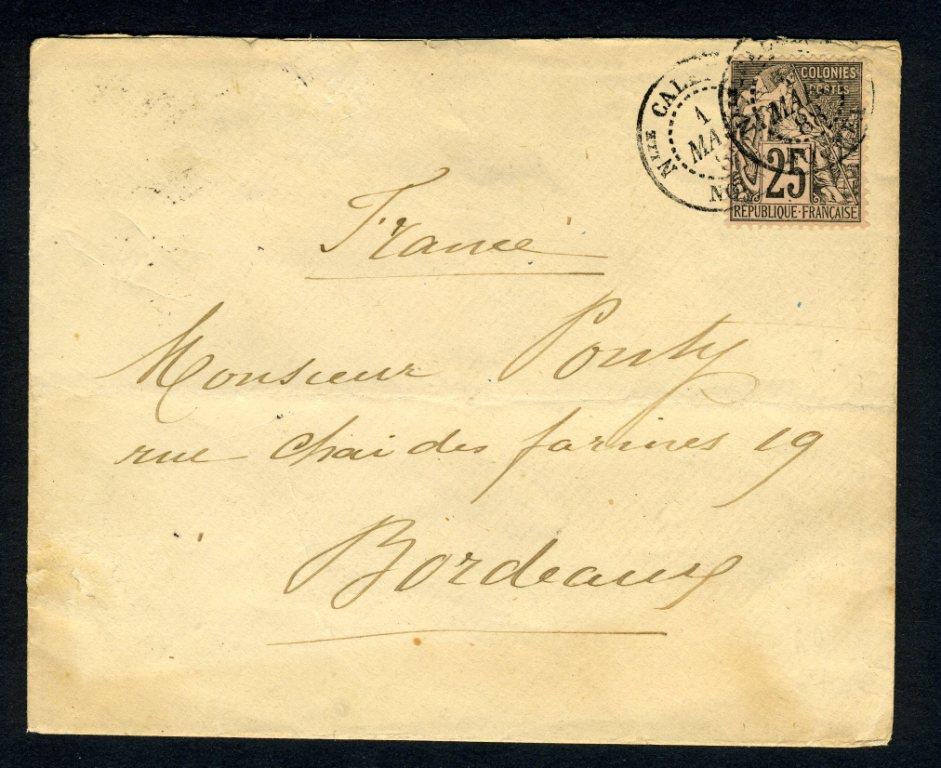 COLONIES
POSTES
25
RÉPUBLIQUE-FRANÇAISE
NLLE CAL
1
MA
88
France
Monsieur Ponty
rue Chai des farines 19
Bordeaux